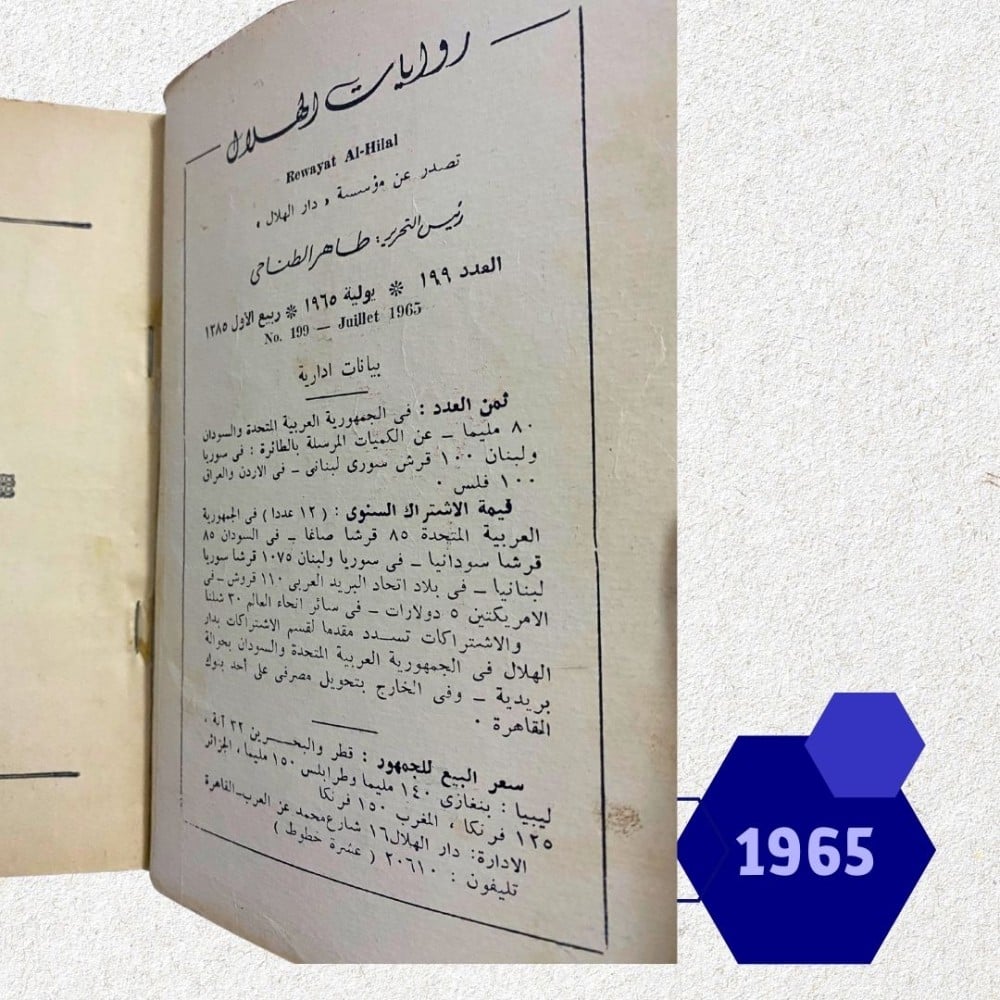 روايات الهلال
Rewayat Al-Hilal
تصدر عن مؤسسة « دار الهلال »
رئيس التحرير: طاهر الطناحى
العدد ١٩٩ * يولية ١٩٦٥ * ربيع الاول ١٣٨٥
No. 199 — Juillet 1965
بيانات ادارية
ثمن العدد : فى الجمهورية العربية المتحدة والسودان
٨٠ مليما ـ عن الكميات المرسلة بالطائرة : فى سوريا
ولبنان ١٠٠ قرش سورى لبنانى ـ فى الاردن والعراق
١٠٠ فلس ٠
قيمة الاشتراك السنوى : ( ١٢ عددا ) فى الجمهورية
العربية المتحدة ٨٥ قرشا صاغا ـ فى السودان ٨٥
قرشا سودانيا ـ فى سوريا ولبنان ١٠٧٥ قرشا سوريا
لبنانيا ـ فى بلاد اتحاد البريد العربى ١١٠ قروش ـ فى
الامريكتين ٥ دولارات ـ فى سائر انحاء العالم ٣٠ شلنا
والاشتراكات تسدد مقدما لقسم الاشتراكات بدار
الهلال فى الجمهورية العربية المتحدة والسودان بحوالة
بريدية ـ وفى الخارج بتحويل مصرفى على أحد بنوك
القاهرة ٠
سعر البيع للجمهور : قطر والبحرين ٣٢ آنة ،
ليبيا : بنغازى ١٤٠ مليما وطرابلس ١٥٠ مليما ، الجزائر
١٢٥ فرنكا ، المغرب ١٥٠ فرنكا
الادارة: دار الهلال ١٦ شارع محمد عز العرب ـ القاهرة
تليفون : ٢٠٦١٠ ( عشرة خطوط )
1965